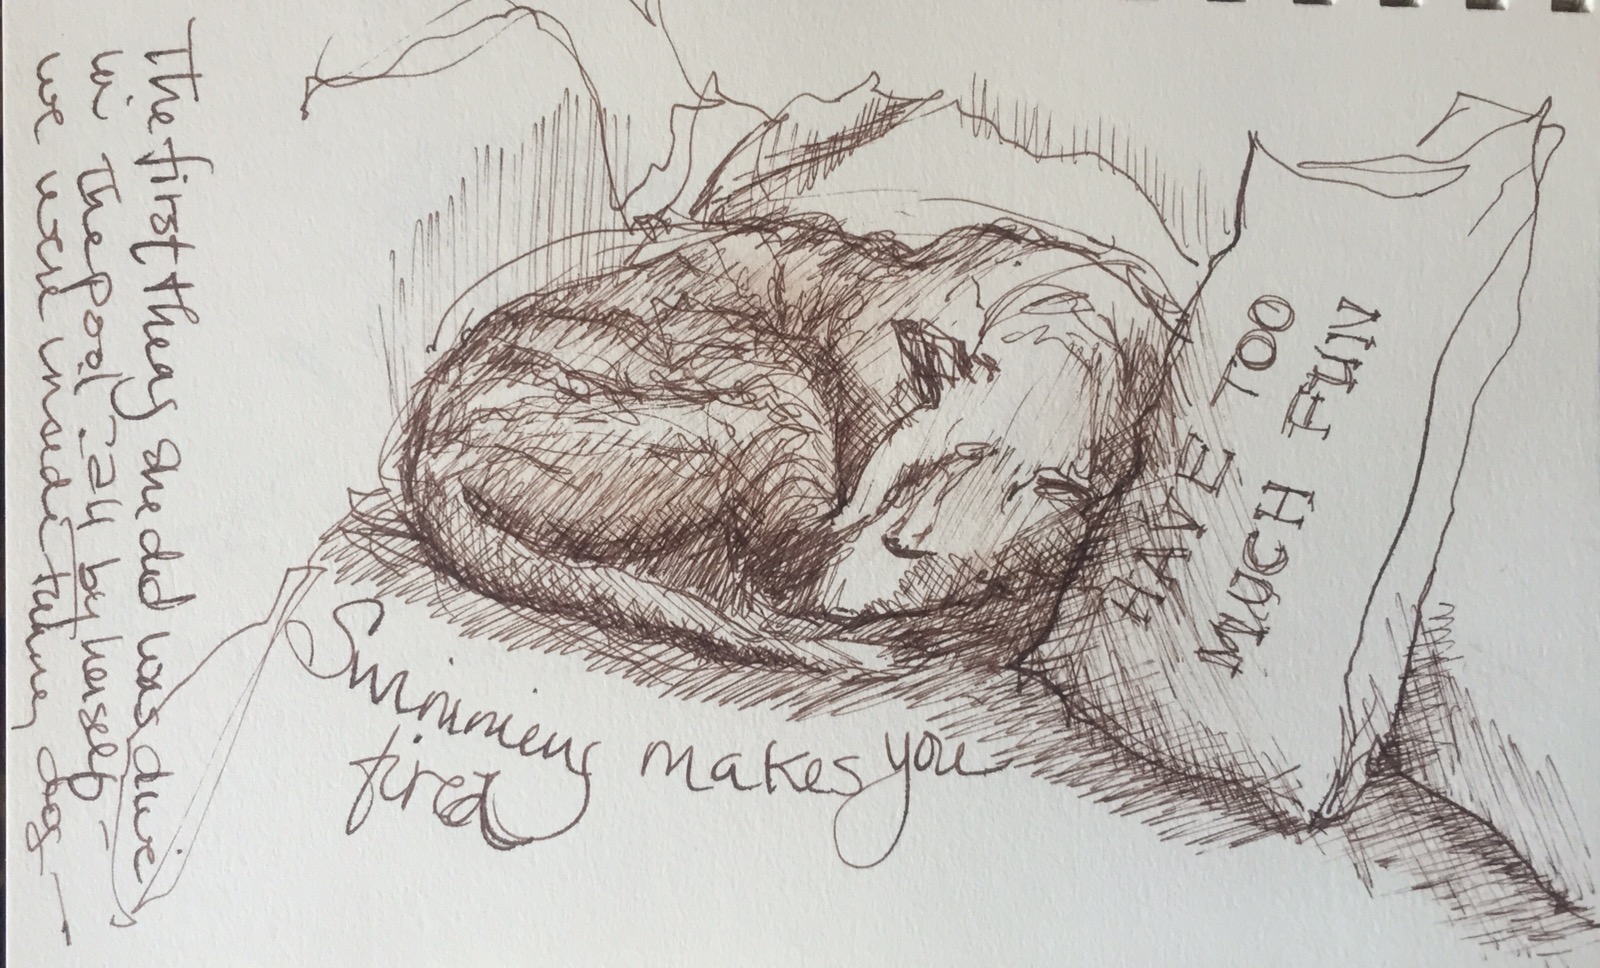 The first thing she did was dive
in the pool - all by herself -
we were inside dog —
HAVE TOO
MUCH FUN
Swimming makes you
tired